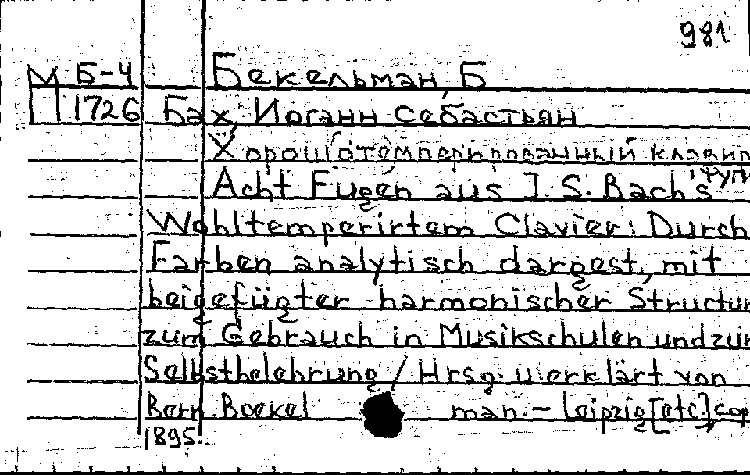 981
М Б-4 Бекельман, Б
П 1726 Бах, Иоганн Себастьян
Хорошотемперированный клавир
Acht Fugen aus J. S. Bach's
Wohltemperirtem Clavier: Durch
Farben analytisch dargest., mit
beigefügter harmonischer Structur
zum Gebrauch in Musikschulen und zur
Selbstbelehrung / Hrsg. u. erklärt von
Bern. Boekel man. - Leipzig [etc.]: cop
1895.